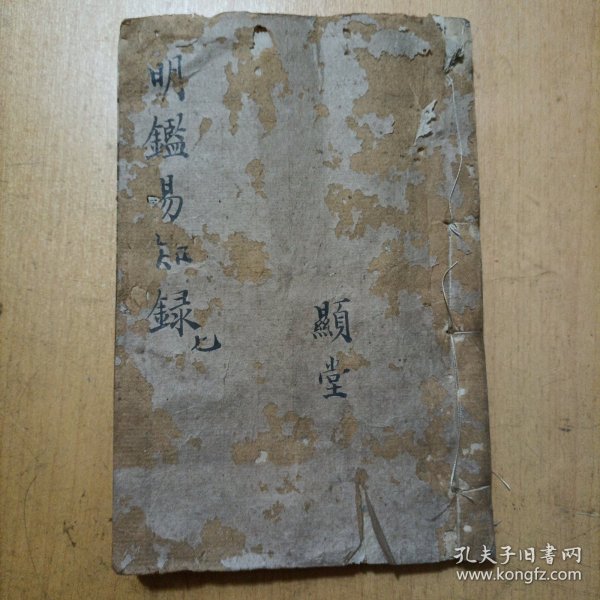 明鑑易知録
七
顯堂
孔夫子旧書网
www.kongfz.com